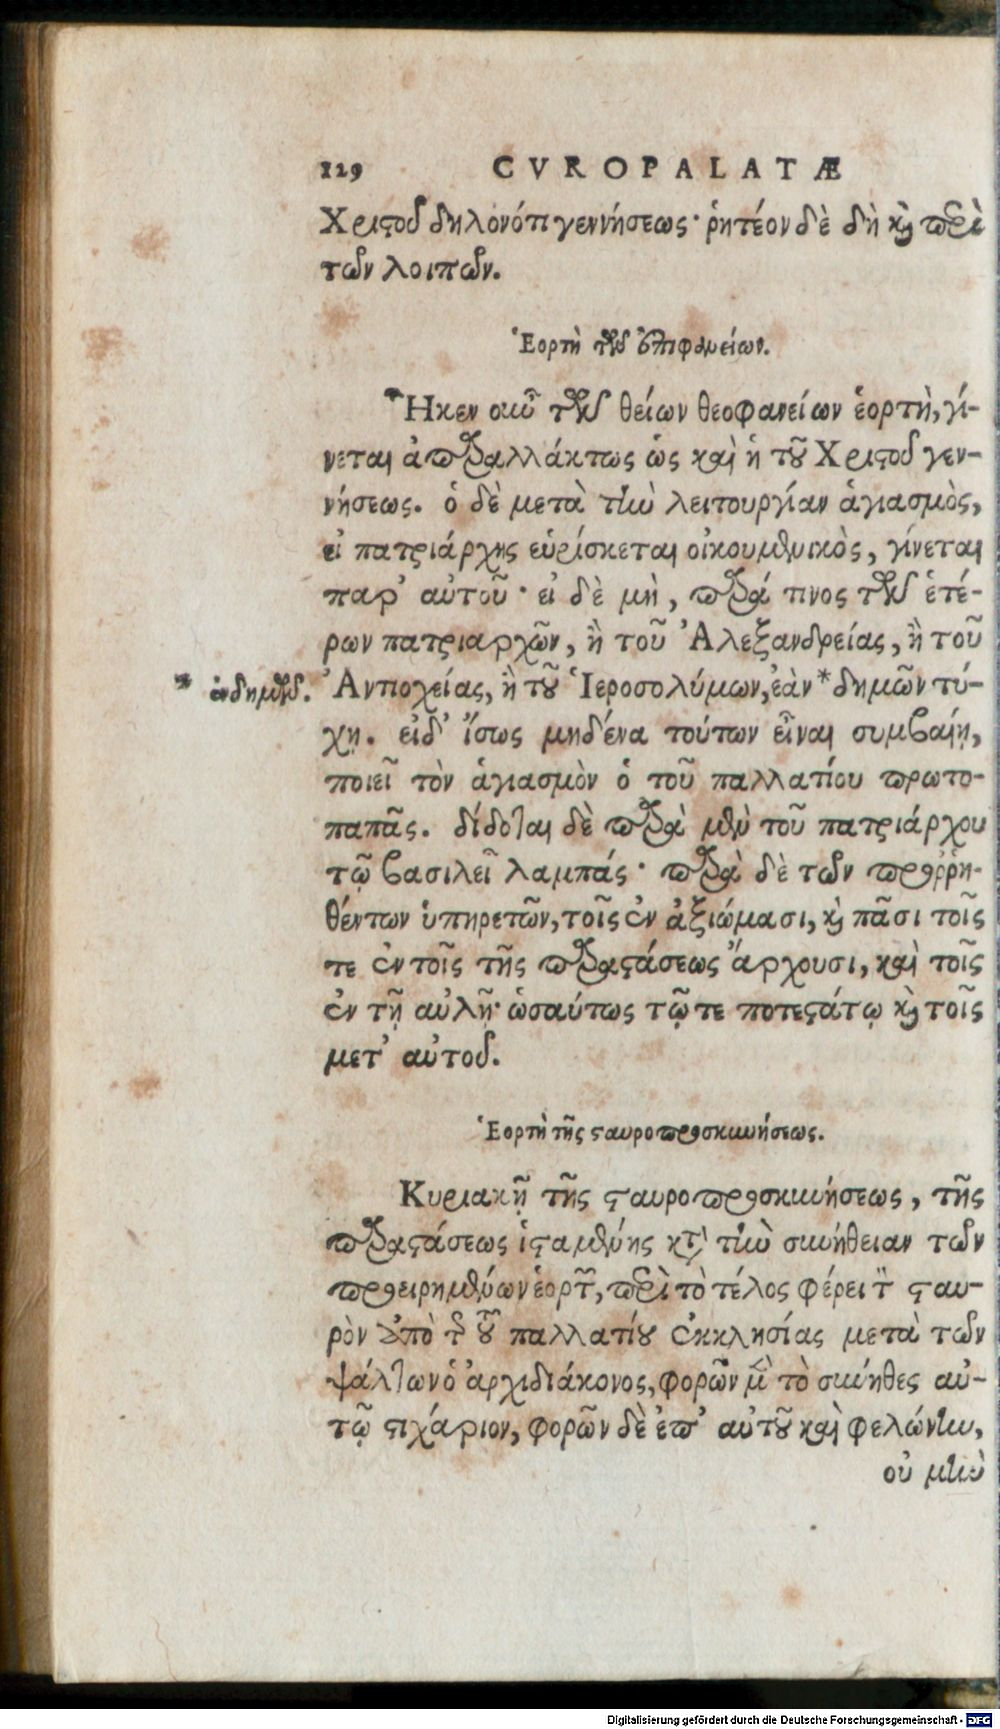 129 CVROPALATÆ
Χριστοῦ δηλονότι γεννήσεως· ῥητέον δὲ δὴ καὶ περὶ
τῶν λοιπῶν.
Ἑορτὴ τῶν ἐπιφανείων.
Ἧκεν οὖν τῶν θείων θεοφανείων ἑορτὴ, γί-
νεται ἀπαραλλάκτως ὡς καὶ ἡ τοῦ Χριστοῦ γεν-
νήσεως. ὁ δὲ μετὰ τὴν λειτουργίαν ἁγιασμὸς,
εἰ πατριάρχης εὑρίσκεται οἰκουμενικὸς, γίνεται
παρ' αὐτοῦ· εἰ δὲ μὴ, παρά τινος τῶν ἑτέ-
ρων πατριαρχῶν, ἢ τοῦ Ἀλεξανδρείας, ἢ τοῦ
* ἐνδημῶν. Ἀντιοχείας, ἢ τοῦ Ἱεροσολύμων, ἐὰν * δημῶν τύ-
χῃ. εἰδ' ἴσως μηδένα τούτων εἶναι συμβαίῃ,
ποιεῖ τὸν ἁγιασμὸν ὁ τοῦ παλλατίου πρωτο-
παπᾶς. δίδοται δὲ παρὰ μὲν τοῦ πατριάρχου
τῷ βασιλεῖ λαμπάς· παρὰ δὲ τῶν προῤῥη-
θέντων ὑπηρετῶν, τοῖς ἐν ἀξιώμασι, καὶ πᾶσι τοῖς
τε ἐν τοῖς τῆς παραστάσεως ἄρχουσι, καὶ τοῖς
ἐν τῇ αὐλῇ· ὡσαύτως τῷ τε ποτεστάτῳ καὶ τοῖς
μετ' αὐτοῦ.
Ἑορτὴ τῆς σταυροπροσκυνήσεως.
Κυριακῇ τῆς σταυροπροσκυνήσεως, τῆς
παραστάσεως ἱσταμένης κατὰ τὴν συνήθειαν τῶν
προειρημένων ἑορτῶν, περὶ τὸ τέλος φέρει τὸν σταυ-
ρὸν ἀπὸ τῆς τοῦ παλλατίου ἐκκλησίας μετὰ τῶν
ψάλτων ὁ ἀρχιδιάκονος, φορῶν μὲν τὸ σύνηθες αὐ-
τῷ στιχάριον, φορῶν δὲ ἐπ' αὐτοῦ καὶ φελώνιν,
οὐ μὴν